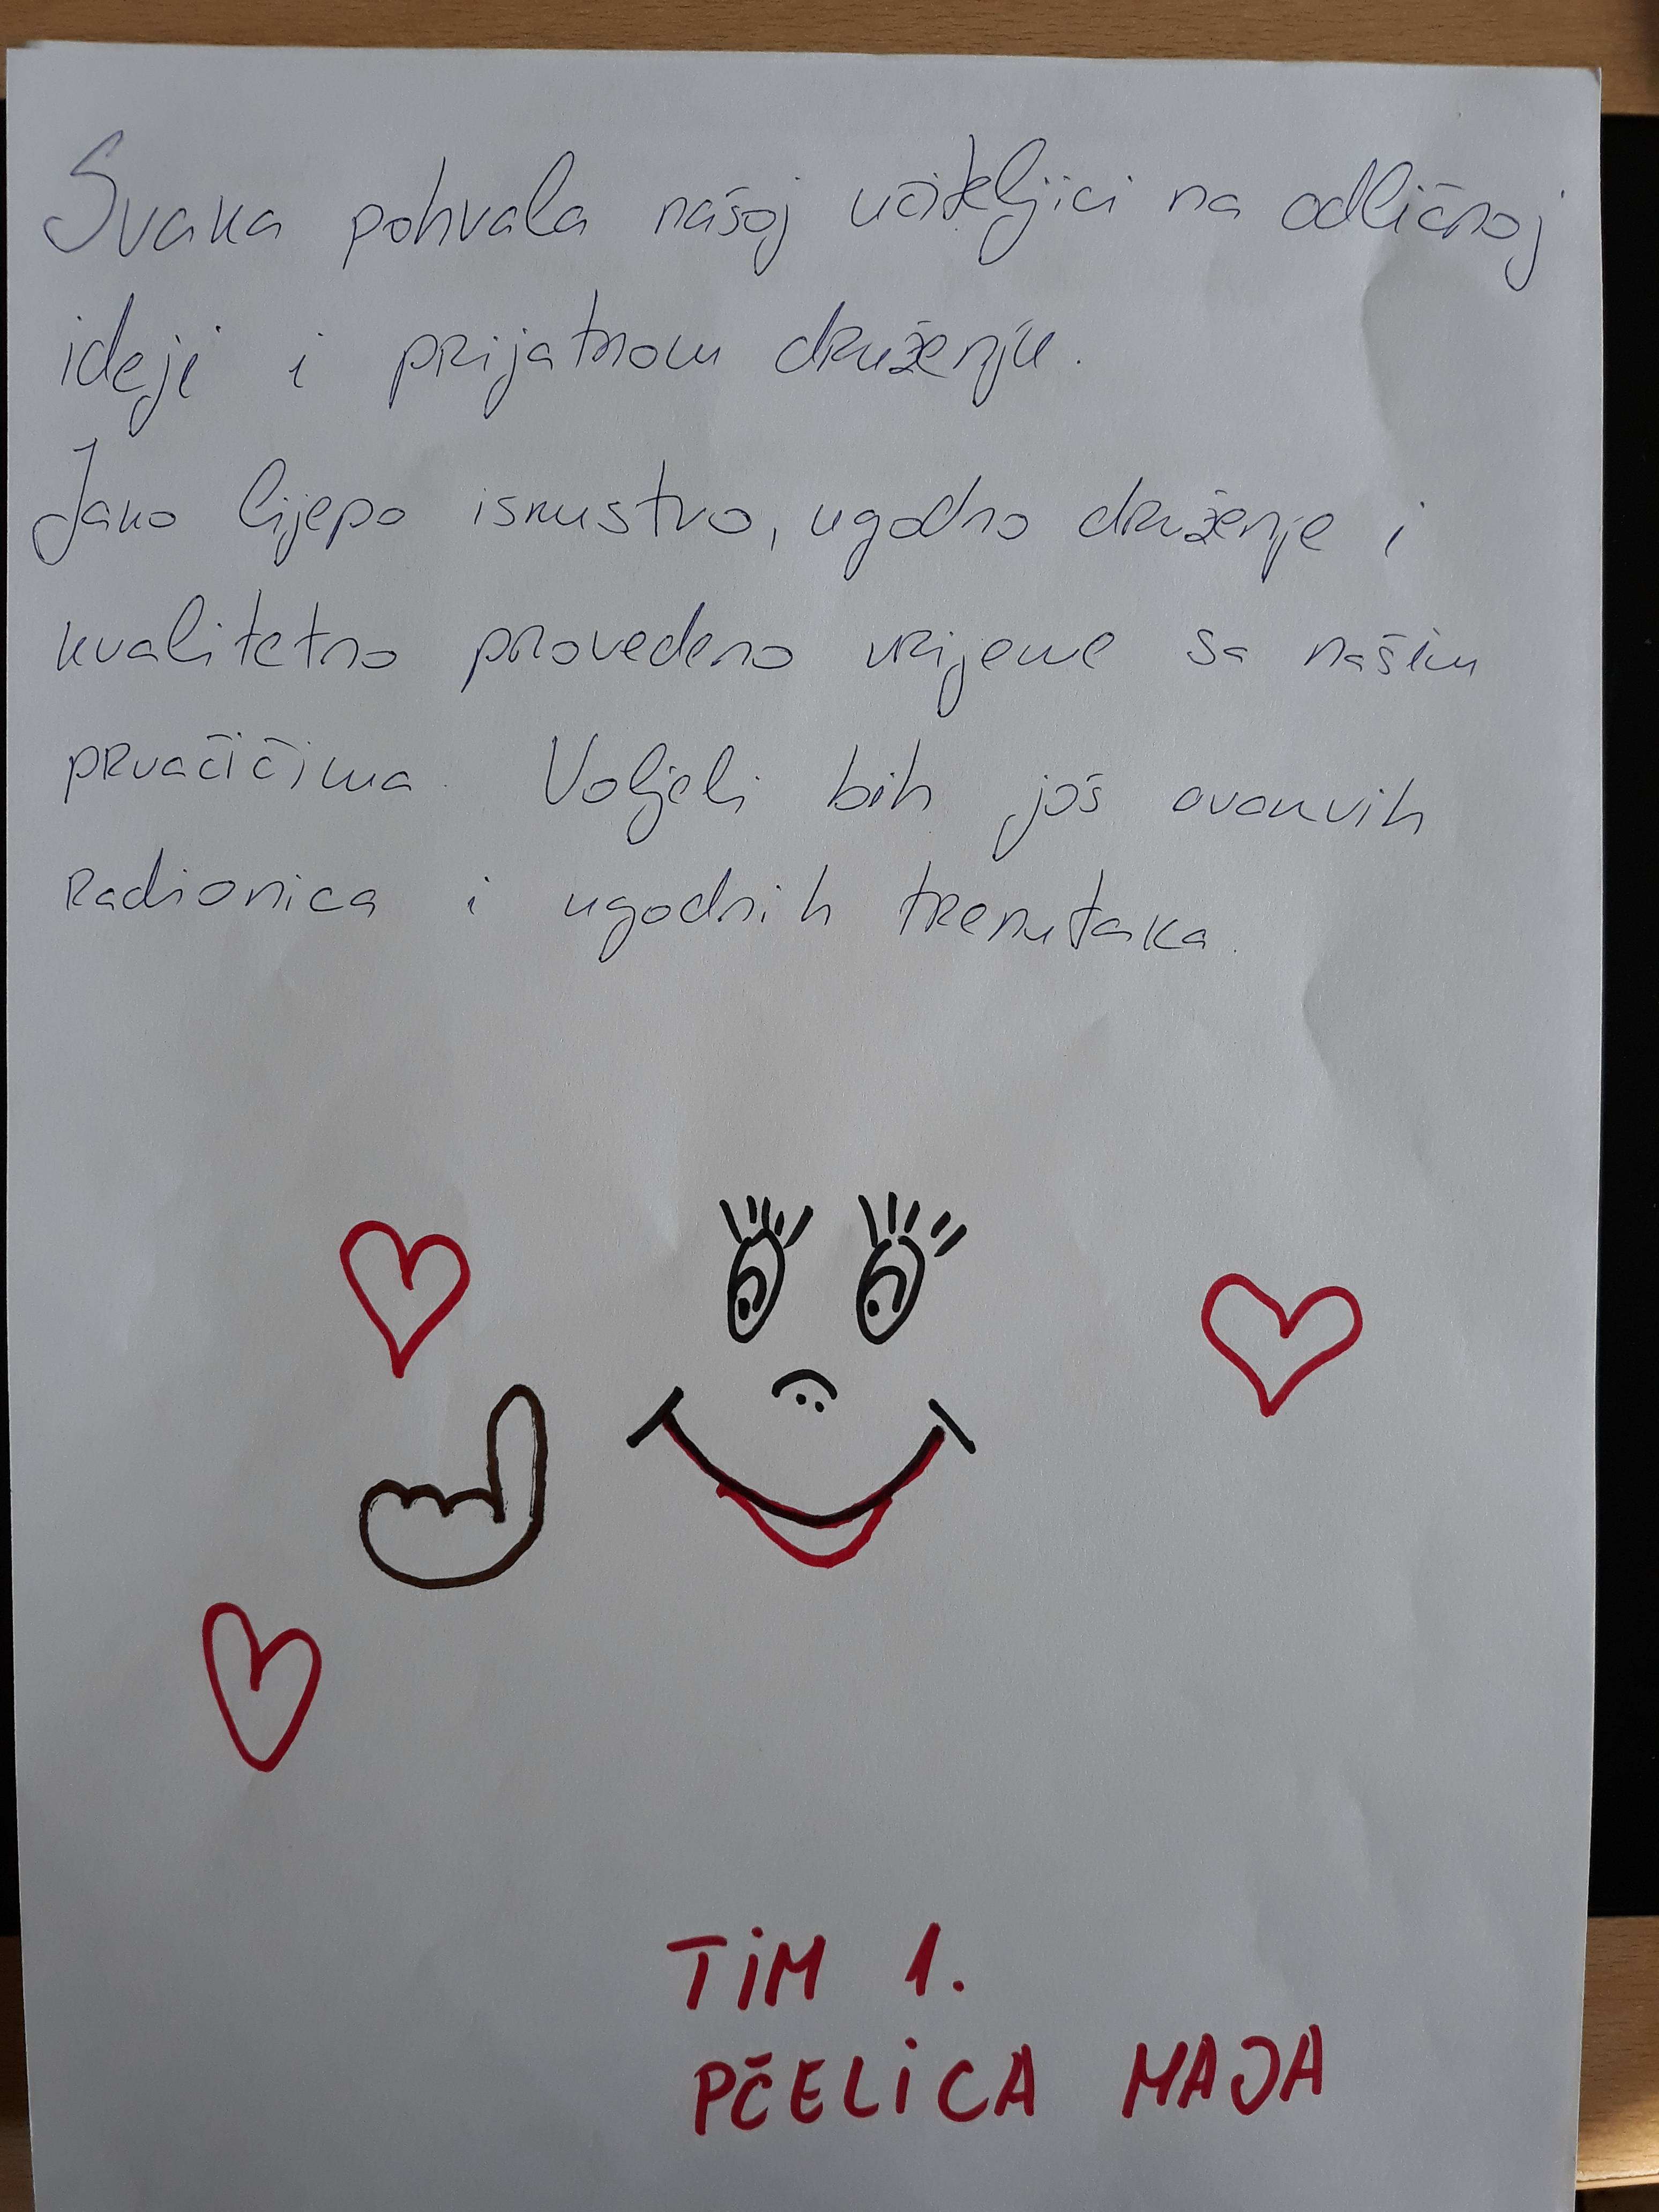 Svaka pohvala našoj učiteljici na odličnoj
ideji i prijatnom druženju.
Jako lijepo iskustvo, ugodno druženje i
kvalitetno provedeno vrijeme sa našim
prvačičima. Voljeli bih još ovakvih
radionica i ugodnih trenutaka.
TiM 1.
PČELiCA MAJA